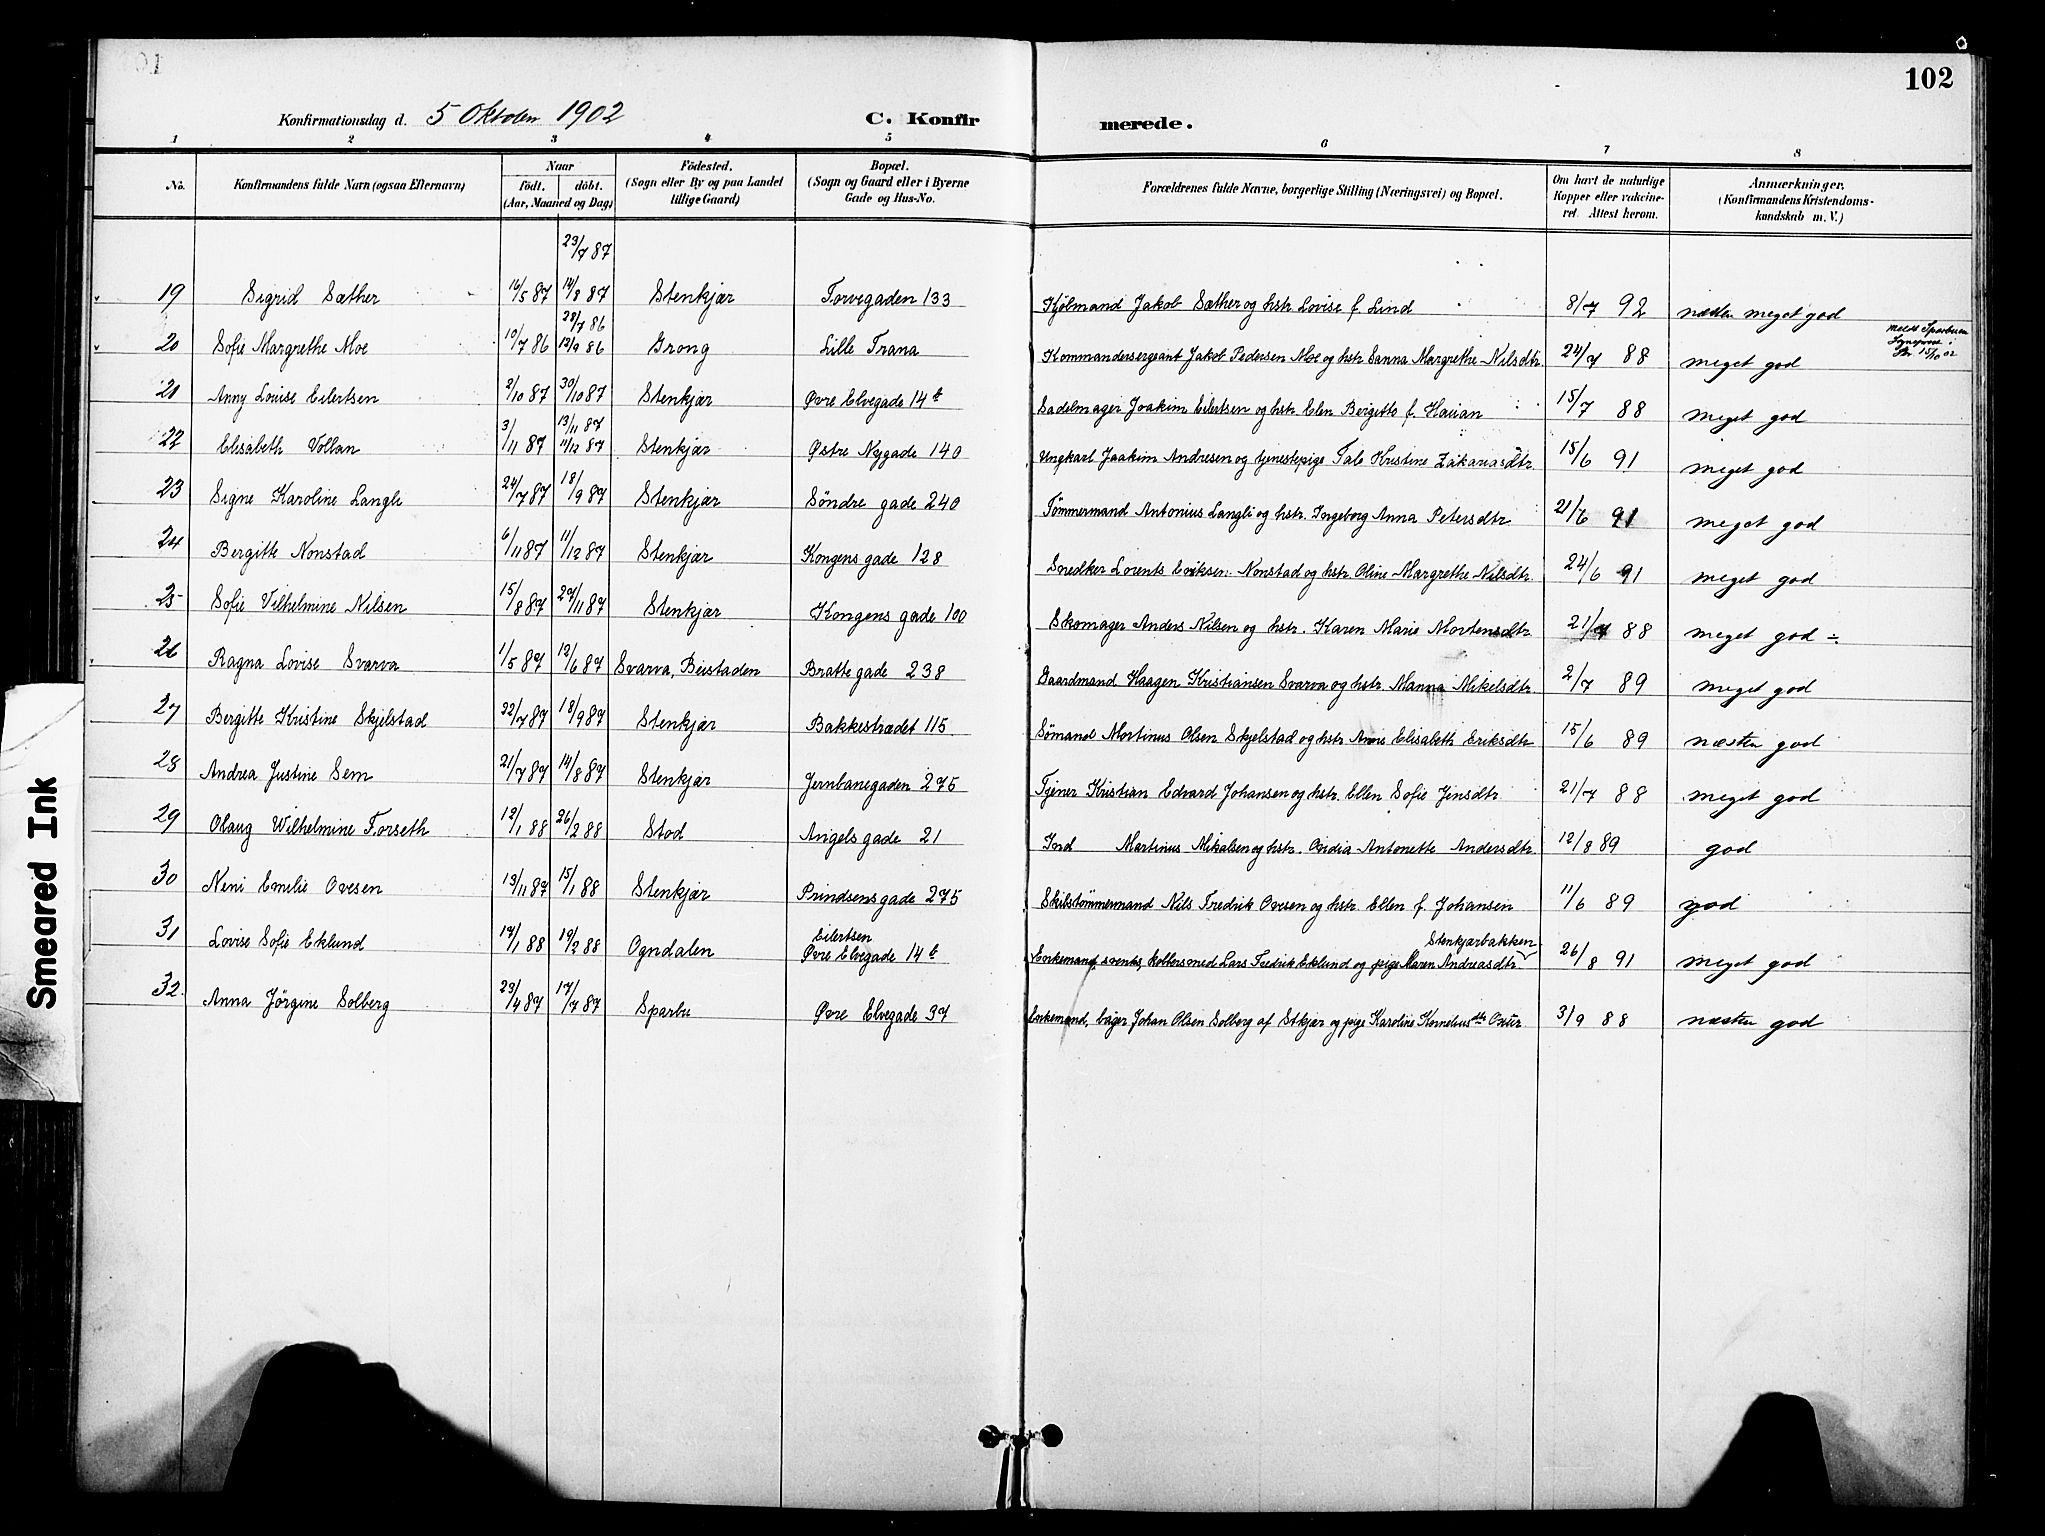 102
Konfirmationsdag d. 5 Oktober 1902
C. Konfirmerede.
1 2 3 4 5 6 7 8
No.
Konfirmandens fulde Navn (ogsaa Efternavn)
Naar
födt. döbt.
(Aar, Maaned og Dag)
Födested.
(Sogn eller By og paa Landet
tillige Gaard)
Bopæl.
(Sogn og Gaard eller i Byerne
Gade og Hus-No.
Forældrenes fulde Navne, borgerlige Stilling (Næringsvei) og Bopæl.
Om havt de naturlige
Kopper eller vakcine-
ret. Attest herom.
Anmærkninger.
(Konfirmandens Kristendoms-
kundskab m. V.)
23/7 87
19 Sigrid Sæther 16/5 87 14/8 87 Stenkjær Torvegaden 133 Kjølmand Jakob Sæther og hstr. Lovise f. Lind 8/7 92 næsten meget god
28/7 86
20 Sofie Margrethe Moe 10/7 86 12/9 86 Grong Lille Trana Kommandersergeant Jakob Pedersen Moe og hstr. Sanna Margrethe Nilsdtr. 24/7 88 meget god
21 Anny Louise Eilertsen 2/10 87 30/10 87 Stenkjær Øvre Elvegade 14b Sadelmager Joakim Eilertsen og hstr. Elen Bergitte f. Hauan 15/7 88 meget god
13/11 87
22 Elisabeth Vollan 3/11 87 11/12 87 Stenkjær Østre Nygade 140 Ungkarl Joakim Andresen og tjenestepige Tale Kristine Zakariasdtr. 15/6 91 meget god
23 Signe Karoline Langli 24/7 87 18/9 87 Stenkjær Søndre gade 240 Tømmermand Antonius Langli og hstr. Ingeborg Anna Petersdtr. 21/6 91 meget god
24 Bergitte Nonstad 6/11 87 11/12 87 Stenkjær Kongens gade 128 Snedker Lorents Eriksen Nonstad og hstr. Oline Margrethe Nilsdtr. 24/6 91 meget god
25 Sofie Vilhelmine Nilsen 15/8 87 27/11 87 Stenkjær Kongens gade 100 Skomager Anders Nilsen og hstr. Karen Marie Mortensdtr. 21/7 88 meget god ÷
26 Ragna Lovise Svarva 1/5 87 12/6 87 Svarva, Beistaden Bratte gade 238 Gaardmand Haagen Kristiansen Svarva og hstr. Manna Mikelsdtr. 2/7 89 meget god
27 Bergitte Kristine Skjelstad 22/7 87 18/9 87 Stenkjær Bakkestrædet 115 Sømand Mortinus Olsen Skjelstad og hstr. Anne Elisabeth Eriksdtr. 15/6 89 næsten god
28 Andrea Justine Sem 21/7 87 14/8 87 Stenkjær Jernbanegaden 275 Tjener Kristian Edvard Johansen og hstr. Ellen Sofie Jensdtr. 21/7 88 meget god
29 Olaug Wilhelmine Forseth 12/1 88 26/2 88 Stod Angels gade 21 Ind Martinus Mikalsen og hstr. Ovidia Antonette Andersdtr. 12/8 89 god
30 Neni Emelie Ovesen 13/11 87 15/1 88 Stenkjær Prindsens gade 275 Skibstømmermand Nils Fredrik Ovesen og hstr. Ellen f. Johansen 11/6 89 god
Eilertsen Stenkjærbakken
31 Lovise Sofie Eklund 17/1 88 19/2 88 Ogndalen Øvre Elvegade 14b Enkemand, svensk, kobbersmed Lars Fredrik Eklund og pige Maren Andreasdtr. 26/8 91 meget god
32. Anna Jörgine Solberg 23/4 87 17/7 87 Sparbu Øvre Elvegade 37 Enkemand, bager Johan Olsen Solberg af Stkjær og pige Karoline Korneliusdtr. 3/9 88 næsten god
Smeared Ink